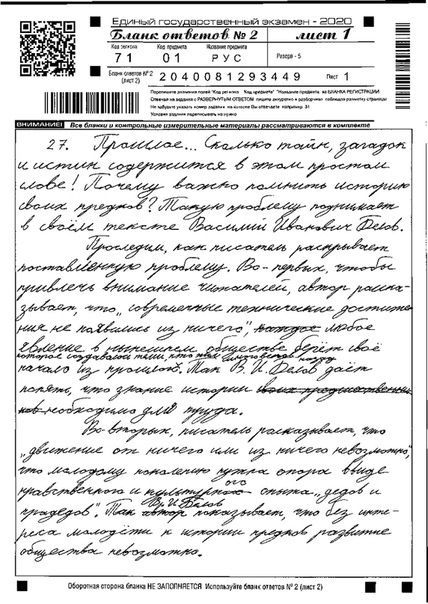 Единый государственный экзамен - 2020
Бланк ответов № 2 лист 1
Код региона Код предмета Название предмета
71 01 РУС Резерв - 5
Бланк ответов № 2 (лист 2) 2040081293449 Лист 1
Перепишите значения полей "Код региона", "Код предмета", "Название предмета" из БЛАНКА РЕГИСТРАЦИИ.
Отвечая на задания с РАЗВЕРНУТЫМ ОТВЕТОМ, пишите аккуратно и разборчиво, соблюдая разметку страницы
Не забудьте указать номер задания, на которое Вы отвечаете, например, 31
Условия задания переписывать не нужно
ВНИМАНИЕ! Все бланки и контрольные измерительные материалы рассматриваются в комплекте
27. Прошлое... Сколько тайн, загадок
и истин содержится в этом простом
слове! Почему важно помнить историю
своих предков? Такую проблему поднимает
в своём тексте Василий Иванович Белов.
Проследим, как писатель раскрывает
поставленную проблему. Во-первых, чтобы
привлечь внимание читателей, автор расска-
зывает, что „современные технические достиже-
ния не появились из ничего", любое
явление в нынешнем обществе берёт своё
начало из прошлого. Так В. И. Белов даёт
понять, что знание истории
необходимо для труда.
Во-вторых, писатель рассказывает, что
„движение от ничего или из ничего невозможно",
что молодому поколению нужна опора ввиде
нравственного и культурного опыта „дедов и
прадедов". Так В. И Белов показывает, что без инте-
реса молодёжи к истории предков развитие
общества невозможно.
Оборотная сторона бланка НЕ ЗАПОЛНЯЕТСЯ. Используйте бланк ответов № 2 (лист 2)